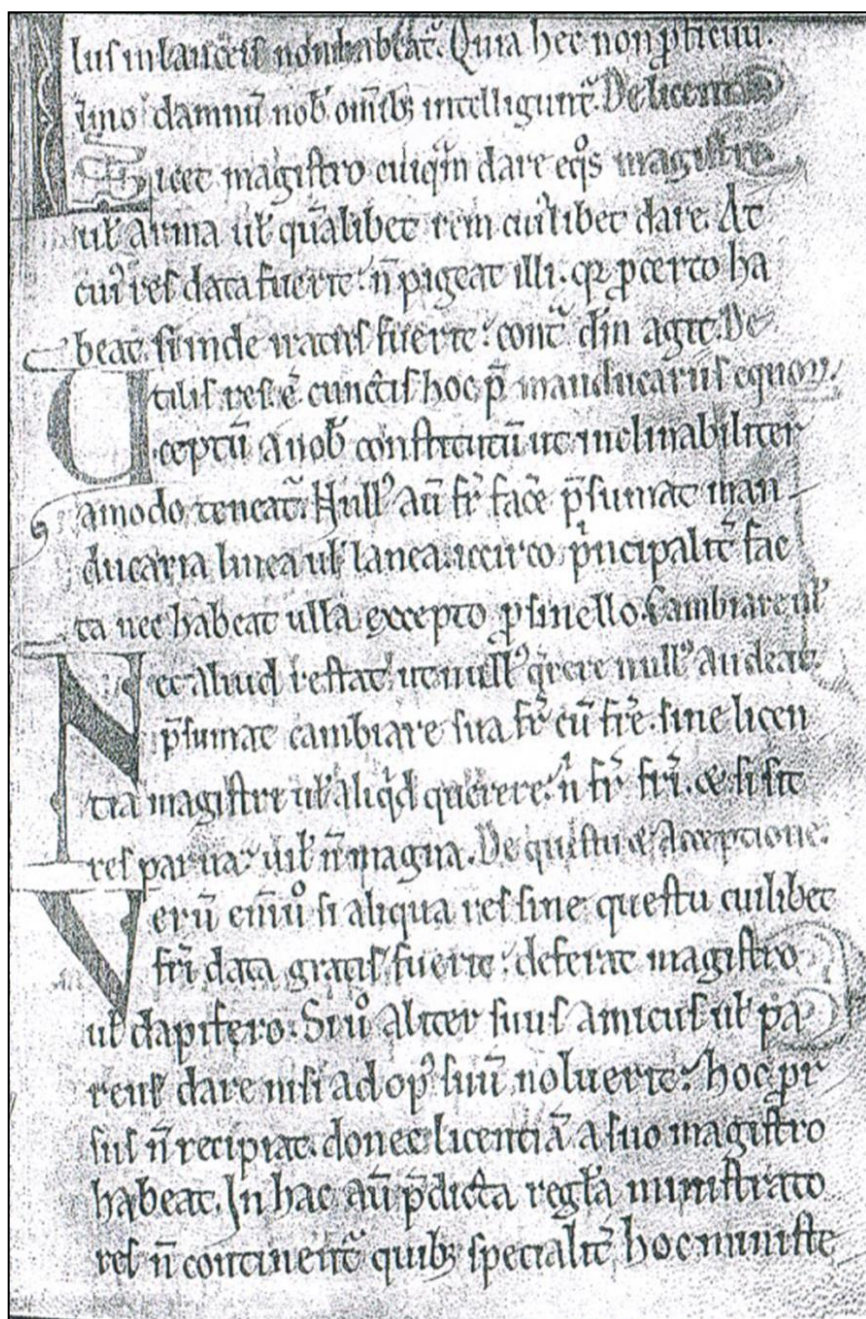 lus in lanceis non habeat᷑. Quia hec non ꝓficuū.
īmo damnū nob̄ om̄ib; intelligunt᷑. De licentia
Licet magistro cuiq̄m dare eq̊s magistri
ul̄ arma ul̄ q̄alibet rem cui᷑libet dare. At
cui᷑ res data fuerit᷑. n̄ pigeat illi. qꝛ ꝓ certo ha
beat. si inde iratus fuerit᷑. cont᷑ dm̄ agit. De
Utilis res. ē cunctis hoc p̄ manducariis equoꝝ.
ceptū a nob̄ constitutū ut inclinabiliter
amodo teneat᷑. Null᷒ aū fr̄ face p̄sumat man
ducaria linea ul̄ lanea. iccirco p͛ncipalit᷑ fac
ta nec habeat ulla excepto ꝓfinello. Cambiare ul̄
Nec aliud restat᷑ ut null᷒ q̄rere null᷒ audeat.
p̄sumat cambiare sua fr̄ cū fr̄e. sine licen
tia magistri ul̄ aliq͛d querere᷑. n̄ fr̄ fr̄i. & si sit
res parua᷑. uil᷑ n̄ magna. De questu & Acceptione.
Verū em̄ů si aliqua res sine questu cuilibet
fr̄i data gratis fuerit᷑. deferat magistro
ul̄ dapifero. Si ů aliter suus amicus ul̄ pa
rens dare nisi ad op᷒ suū noluerit᷑. hoc pr
sus n̄ recipiat. donec licentiā a suo magistro
habeat. In hac aū p̄dicta regl̄a ministrato
res n̄ continent᷑ quib; specialit᷑ hoc ministe